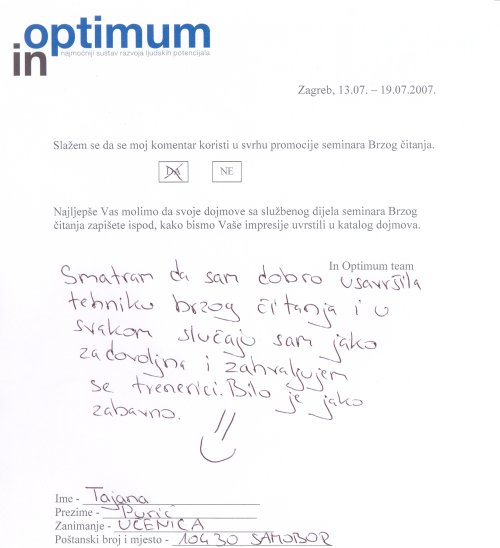 in optimum
najmoćniji sustav razvoja ljudskih potencijala
Zagreb, 13.07. – 19.07.2007.
Slažem se da se moj komentar koristi u svrhu promocije seminara Brzog čitanja.
DA NE
Najljepše Vas molimo da svoje dojmove sa službenog dijela seminara Brzog
čitanja zapišete ispod, kako bismo Vaše impresije uvrstili u katalog dojmova.
In Optimum team
Smatram da sam dobro usavršila
tehniku brzog čitanja i u
svakom slučaju sam jako
zadovoljna i zahvaljujem
se trenerici. Bilo je jako
zabavno.
Ime - Tajana
Prezime - Purić
Zanimanje - UČENICA
Poštanski broj i mjesto - 10430 SAMOBOR